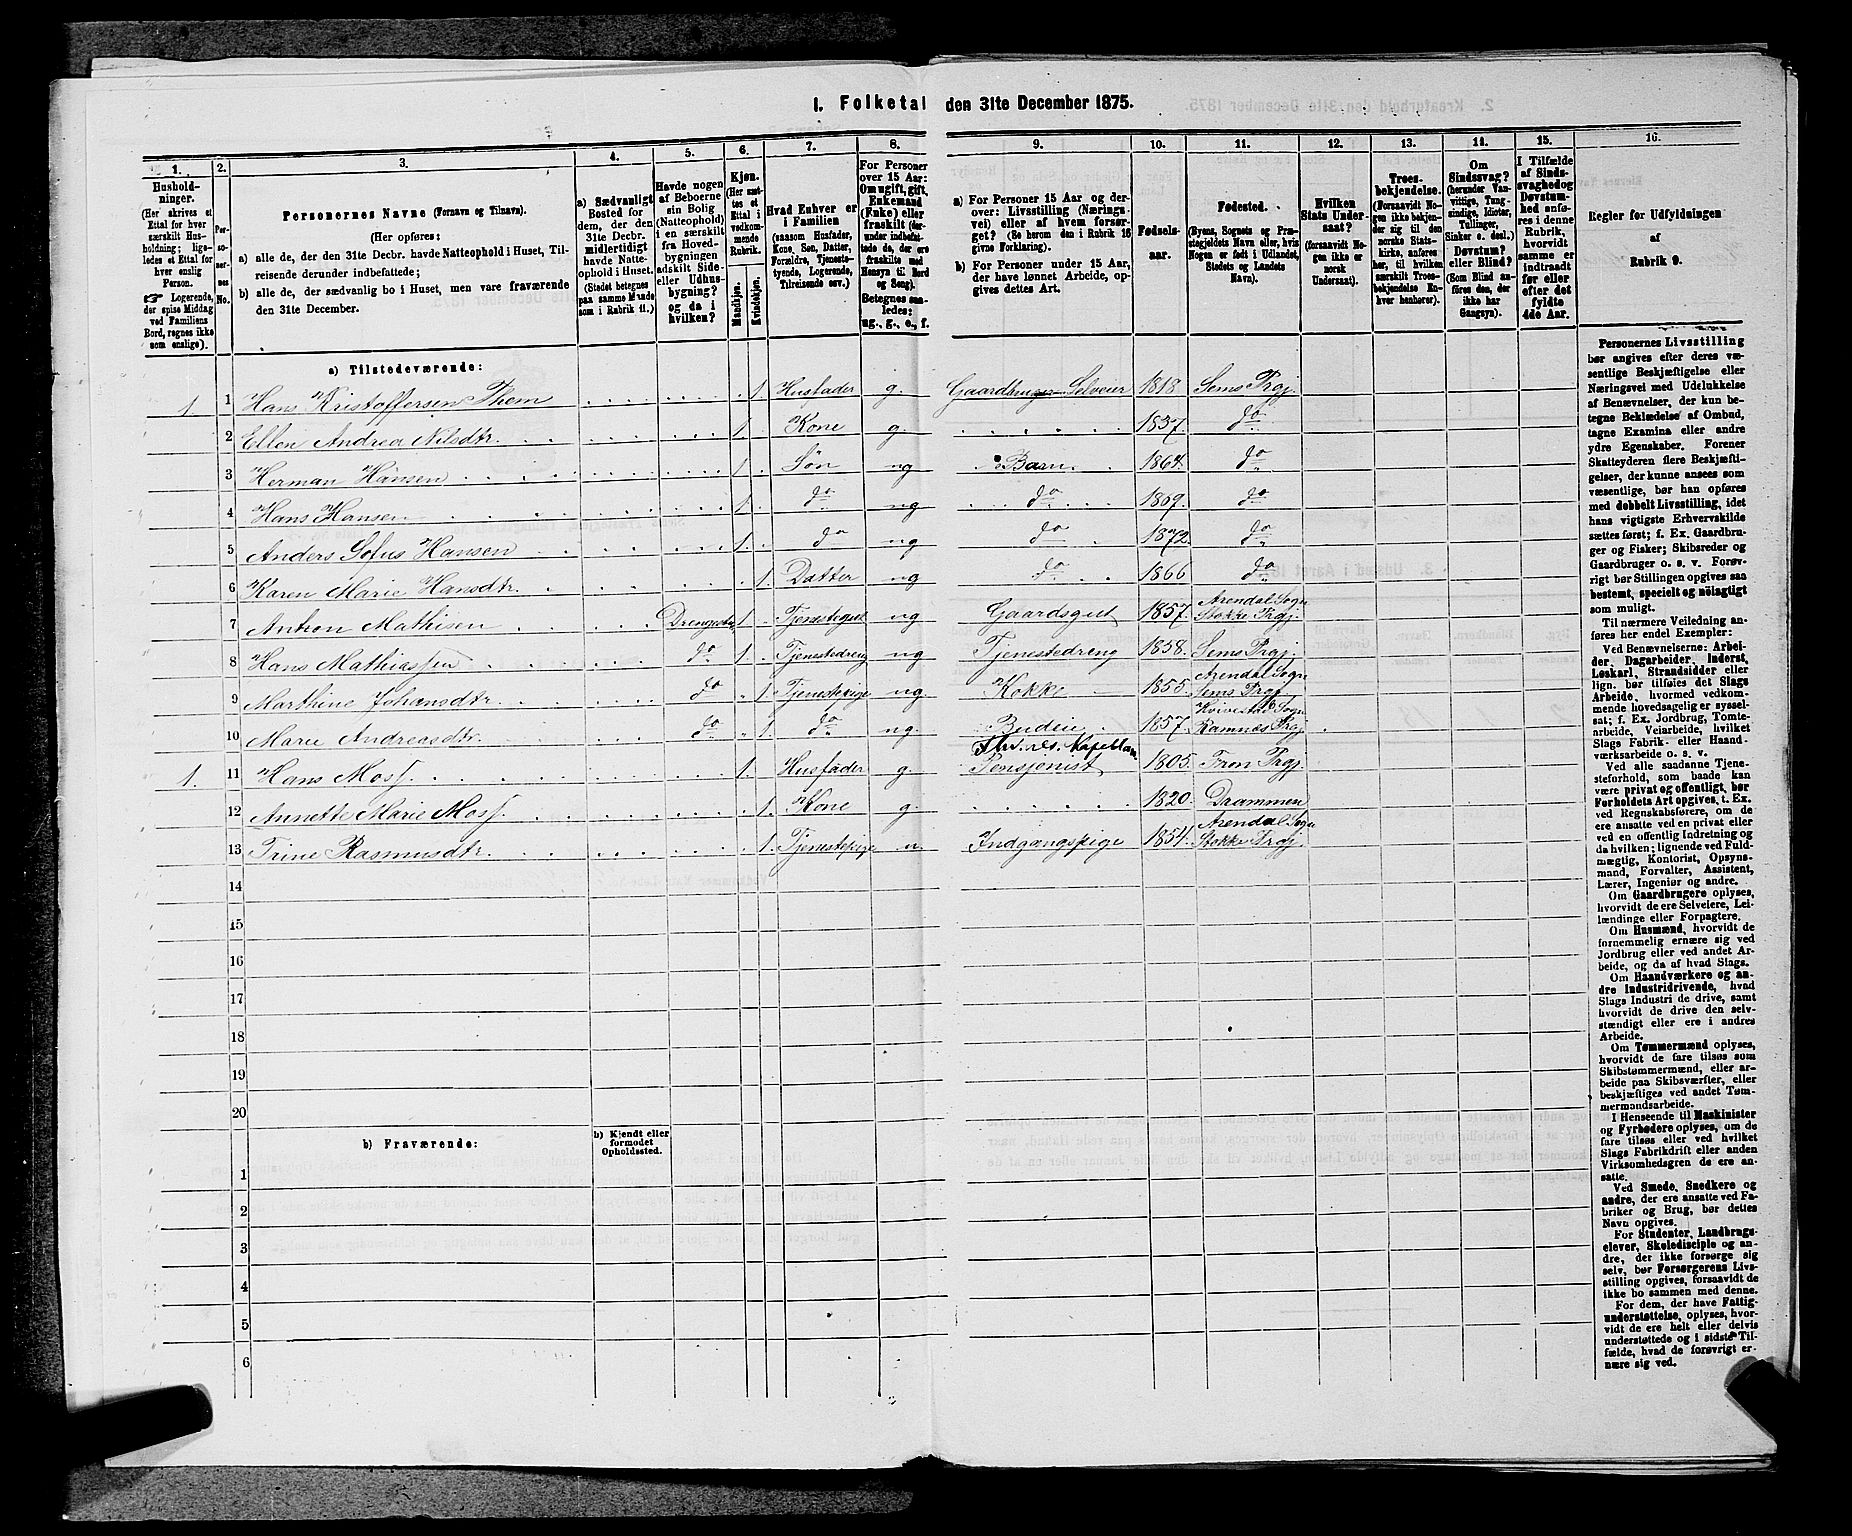 1. Folketal den 31te December 1875.
1. 2. 3. 4. 5. 6. 7. 8. 9. 10. 11. 12. 13. 14. 15. 16.
Hushold-
ninger.
(Her skrives et
Ettal for hver
særskilt Hus-
holdning; lige-
ledes et Ettal for
hver enslig
Person.
☞ Logerende,
der spise Middag
ved Familiens
Bord, regnes ikke
som enslige).
Per-
so-
ner-
nes
No.
Personernes Navne (Fornavn og Tilnavn).
(Her opføres:
a) alle de, der den 31te Decbr. havde Natteophold i Huset, Til-
reisende derunder indbefattede;
b) alle de, der sædvanlig bo i Huset, men vare fraværende
den 31te December.
a) Sædvanligt
Bosted for
dem, der den
31te Decbr.
midlertidigt
havde Natte-
ophold i Huset.
(Stedet betegnes
paa samme Maade
som i Rubrik 11.)
Havde nogen
af Beboerne
sin Bolig
(Natteophold)
i en særskilt
fra Hoved-
bygningen
adskilt Side-
eller Udhus-
bygning?
og da i
hvilken?
Kjøn.
(Her sæt-
tes et
Ettal i
vedkom-
mende
Rubrik.
Mandkjøn.
Kvindekjøn.
Hvad Enhver er
i Familien
(saasom Husfader,
Kone, Søn, Datter,
Forældre, Tjeneste-
tyende, Logerende,
Tilreisende osv.)
For Personer
over 15 Aar:
Om ugift, gift,
Enkemand
(Enke) eller
fraskilt (her-
under indbefat-
tede de, der ere
fraskilte med
Hensyn til Bord
og Seng).
Betegnes saa-
ledes:
ug., g., e., f.
a) For Personer 15 Aar og der-
over: Livsstilling (Nærings-
vei) eller af hvem forsør-
get? (Se herom den i Rubrik 16
givne Forklaring).
b) For Personer under 15 Aar,
der have lønnet Arbeide, op-
gives dettes Art.
Fødsels-
aar.
Fødested.
(Byens, Sognets og Præ-
stegjeldets Navn eller, hvis
Nogen er født i Udlandet,
Stedets og Landets
Navn).
Hvilken
Stats Under-
saat?
(forsaavidt No-
gen ikke er
norsk
Undersaat).
Troes-
bekjendelse.
(Forsaavidt No-
gen ikke bekjen-
der sig til den
norske Stats-
kirke, anføres
her, til hvilken
særskilt Troes-
bekjendelse En-
hver henhører).
Om
Sindssvag?
(herunder Van-
vittige, Tung-
sindige, Idioter,
Tullinger,
Sinker o. desl.)
Døvstum?
eller Blind?
(Som Blind an-
føres den, der
ikke har
Gangsyn).
I Tilfælde
af Sinds-
svaghed og
Døvstum-
hed anfø-
res i denne
Rubrik,
hvorvidt
samme er
indtraadt
før eller
efter det
fyldte
4de Aar.
Regler for Udfyldningen
af
Rubrik 9.
a) Tilstedeværende:
1. 1 Hans Kristoffersen Them 1. Husfader g. Gaardbruger Selveier 1818. Sems Prgj.
2 Ellen Andrea Nilsdtr. 1 Kone g. 1837. do
3 Herman Hansen 1 Søn ug Barn 1864. do
4 Hans Hansen 1 do ug do 1869. do
5 Anders Sofus Hansen 1 do ug do 1872. do
6 Karen Marie Hansdtr. 1. Datter ug do 1866 do
7 Antron Mathisen Drengestu 1 Tjenestegut ug Gaardsgut 1857. Arendal Sogn Stokke Prgj.
8 Hans Mathiassen do 1. Tjenestedreng ug Tjenestedreng 1858. Sems Prgj.
9 Marthine Johansdtr. do 1 Tjenestepige ug. Kokke 1855. Arendal Sogn Sems Prgj
10 Marie Andreasdtr. do 1. do ug. Budeie 1857. Kvivestad Sogn Ramnæs Prgj
1. 11 Hans Moss. 1. Husfader g. Pensjonist 1805. Fron Prgj.
12 Annette Marie Moss. 1. Kone g. 1820. Drammen
13 Trine Rasmusdtr. 1. Tjenestepige u. Indgangspige 1854. Arendal Sogn Stokke Prgj.
14
15
16
17
18
19
20
b) Fraværende:
b) Kjendt eller
formodet
Opholdssted.
1
2
3
4
5
6
Personernes Livsstilling
bør angives efter deres væ-
sentlige Beskjæftigelse eller
Næringsvei med Udelukkelse
af Benævnelser, der kun be-
tegne Beklædelse af Ombud,
tagne Examina eller andre
ydre Egenskaber. Forener
Skatteyderen flere Beskjæfti-
gelser, der kunne ansees som
væsentlige, bør han opføres
med dobbelt Livsstilling, idet
hans vigtigste Erhvervskilde
sættes først; f. Ex. Gaardbru-
ger og Fisker; Skibsreder og
Gaardbruger o. s. v. Forøv-
rigt bør Stillingen opgives saa
bestemt, specielt og nøiagtigt
som muligt.
Til nærmere Veiledning an-
føres her endel Exempler:
Ved Benævnelserne: Arbei-
der, Dagarbeider, Inderst,
Løskarl, Strandsidder eller
lign. bør tilføies det Slags
Arbeide, hvormed vedkom-
mende hovedsagelig er syssel-
sat; f. Ex. Jordbrug, Tomte-
arbeide, Veiarbeide, hvilket
Slags Fabrik- eller Haand-
værksarbeide o. s. v.
Ved alle saadanne Tjene-
steforhold, som baade kan
være privat og offentligt, bør
Forholdets Art opgives, t. Ex.
ved Regnskabsførere, om de
ere ansatte ved en privat eller
ved en offentlig Indretning og
da hvilken; lignende ved Fuld-
mægtig, Kontorist, Opsyns-
mand, Forvalter, Assistent,
Lærer, Ingeniør og andre.
Om Gaardbrugere oplyses,
hvorvidt de ere Selveiere, Lei-
lændinge eller Forpagtere.
Om Husmænd, hvorvidt de
fornemmelig ernære sig ved
Jordbrug eller ved andet Ar-
beide, og da af hvad Slags.
Om Haandværkere og an-
dre Industridrivende, hvad
Slags Industri de drive, samt
hvorvidt de drive den selv-
stændigt eller ere i andres
Arbeide.
Om Tømmermænd oplyses,
hvorvidt de fare tilsøs som
Skibstømmermænd, eller ar-
beide paa Skibsværfter, eller
beskjæftiges ved andet Tøm-
mermandsarbeide.
I Henseende til Maskinister
og Fyrbødere oplyses, om de
fare tilsøs eller ved hvilket
Slags Fabrikdrift eller anden
Virksomhedsgren de ere an-
satte.
Ved Smede, Snedkere og
andre, der ere ansatte ved Fa-
briker og Brug, bør dettes
Navn opgives.
For Studenter, Landbrugs-
elever, Skoledisciple og an-
dre, der ikke forsørge sig
selv, bør Forsørgerens Livs-
stilling opgives, forsaavidt de
ikke bo sammen med denne.
For dem, der have Fattig-
understøttelse, oplyses, hvor-
vidt de ere helt eller delvis
understøttede og i sidste Til-
fælde, hvad de forøvrigt er-
nære sig ved.